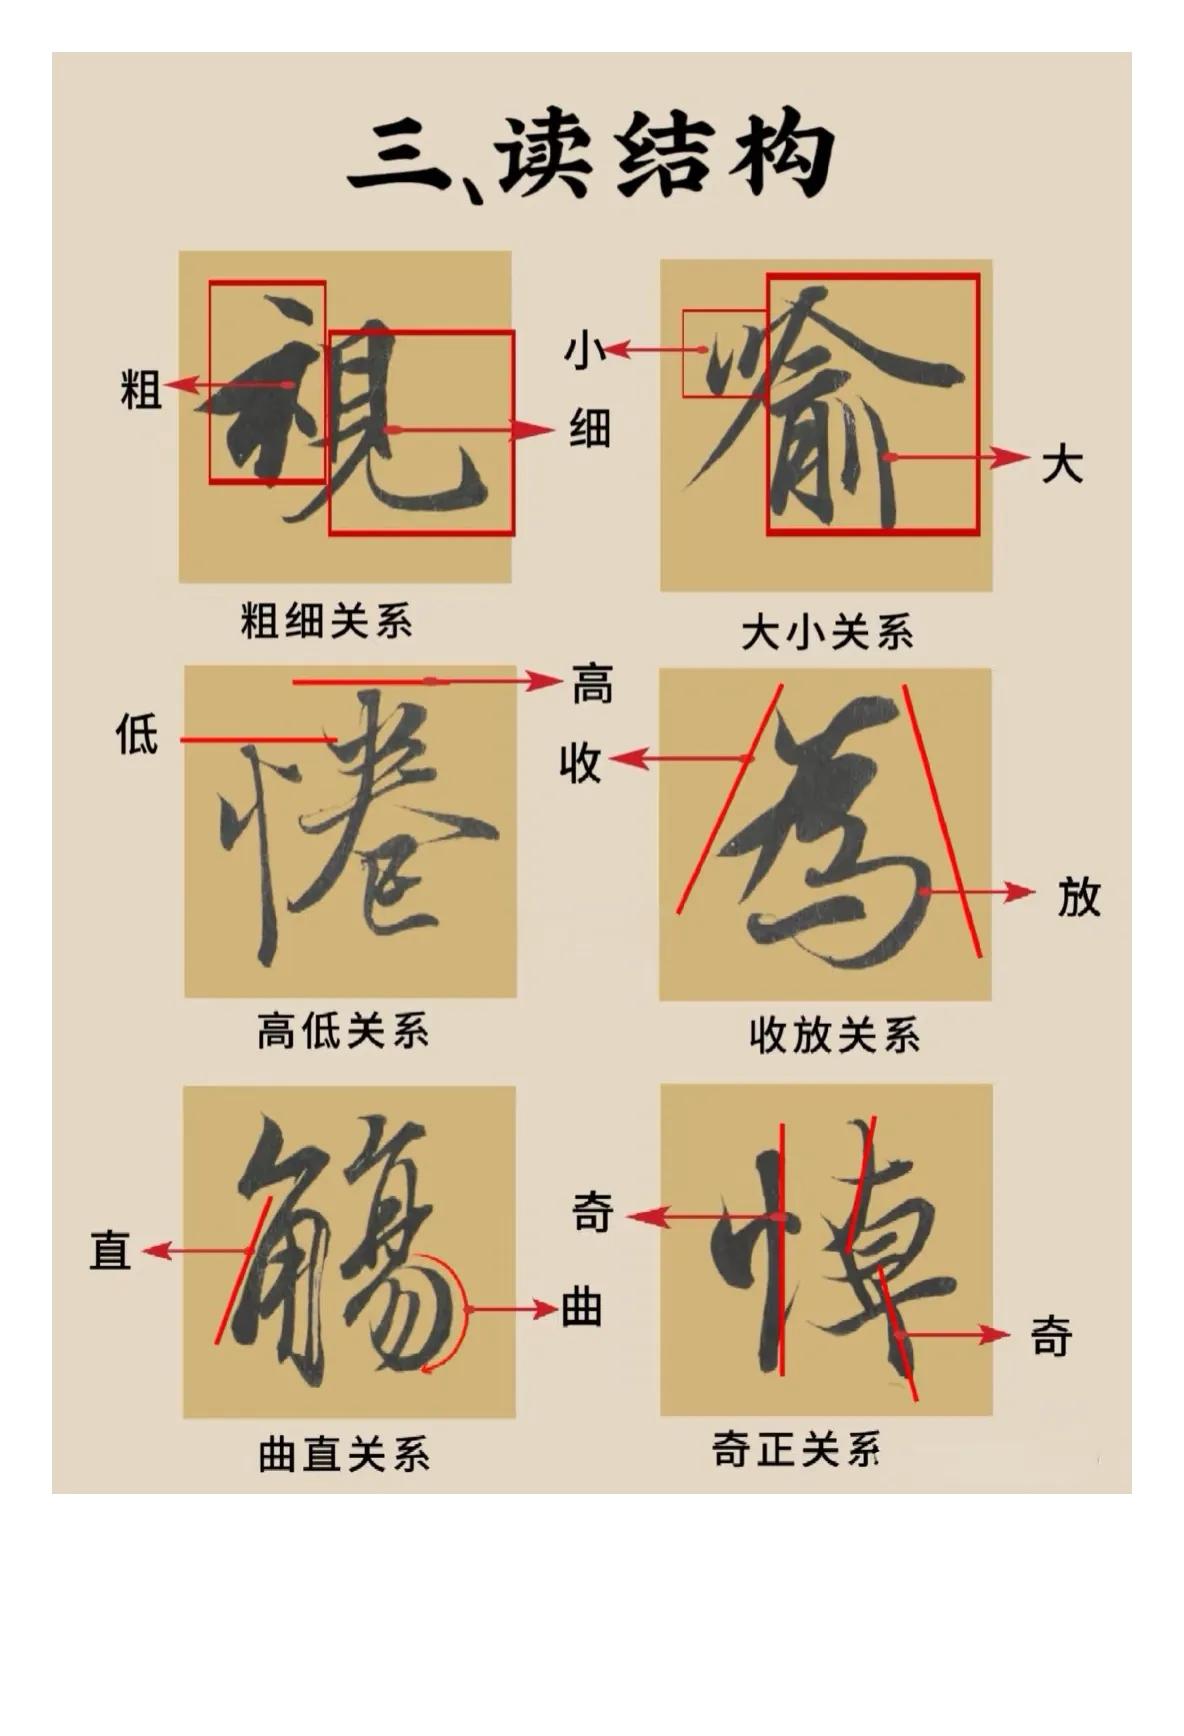 三、读结构
粗
視
细
粗细关系
小
喻
大
大小关系
低
惓
高
高低关系
收
為
放
收放关系
直
觴
曲
曲直关系
奇
悼
奇
奇正关系